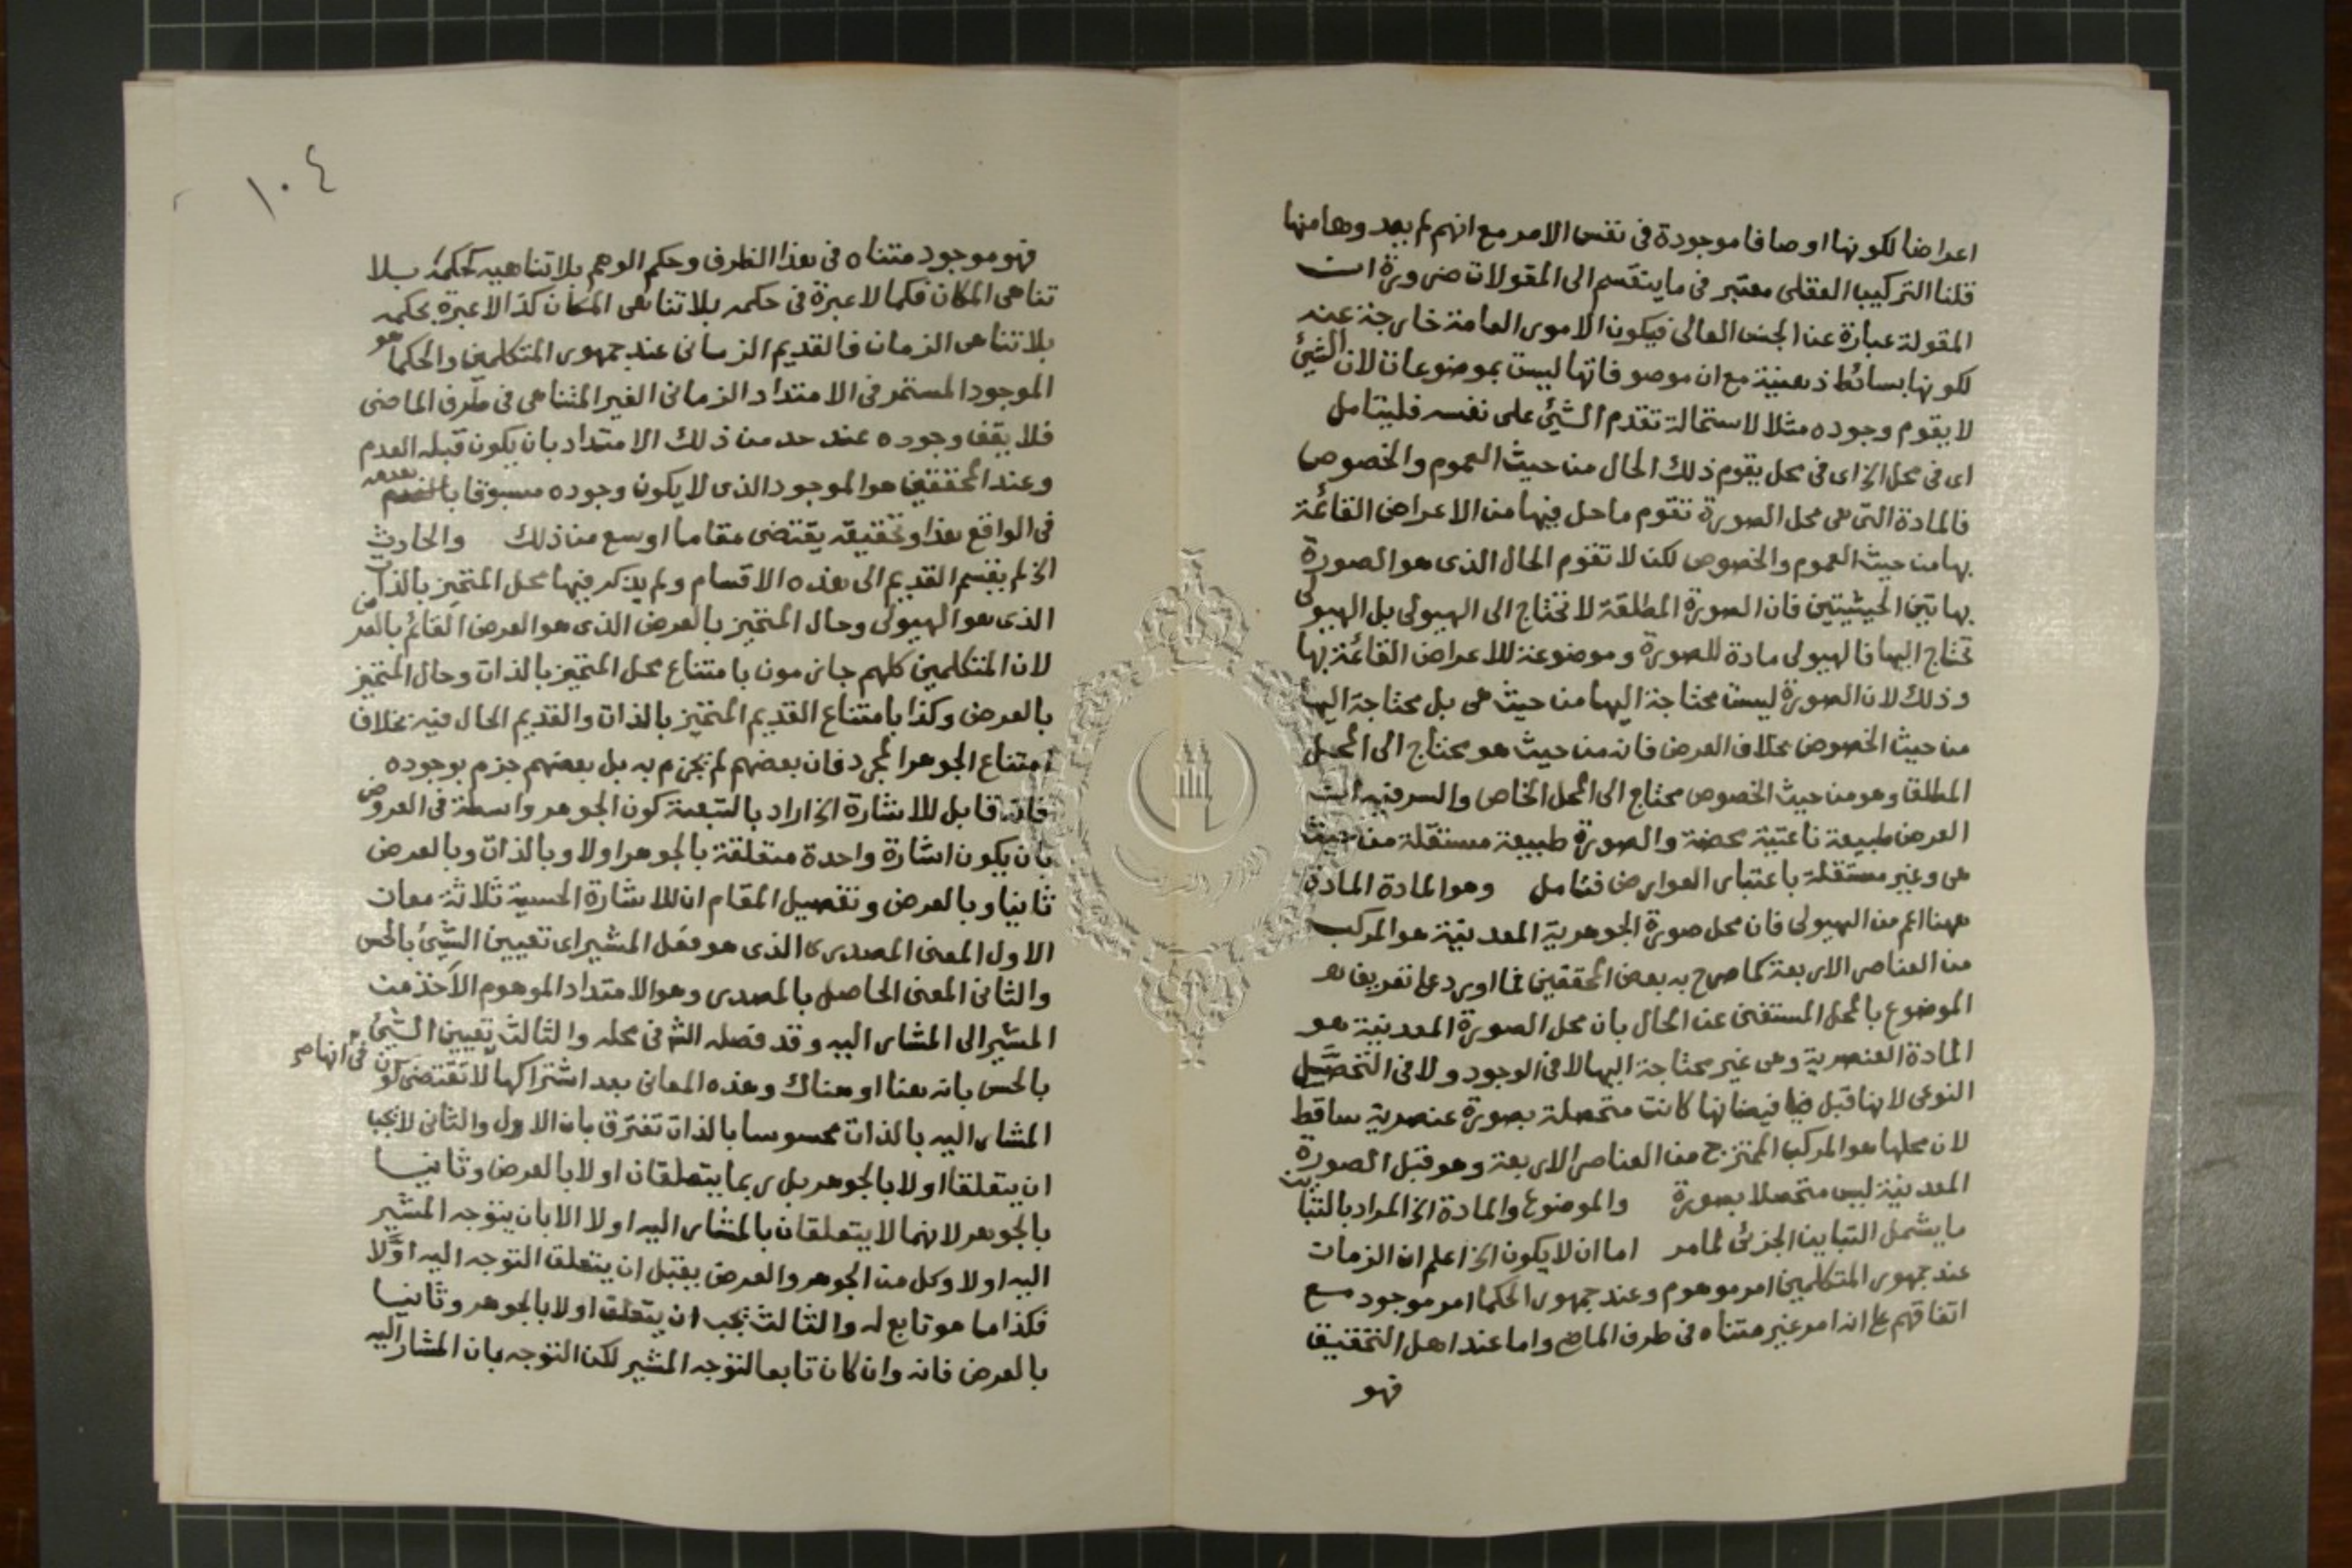 اعراضا لكونها اوصافا موجودة فى نفس الامر مع انهم لم يعدوها منها
قلنا التركيب العقلى معتبر فى ما ينقسم الى المقولات ضرورة ان
المقولة عبارة عن الجنس العالى فيكون الامور العامة خارجة عنه
لكونها بسائط ذهنية مع ان موصوفاتها ليست بموضوعات لان الشئ
لا يقوم وجوده مثلا لاستحالة تقدم الشئ على نفسه فليتامل
اى فى محل الخ اى فى محل يقوم ذلك الحال من حيث العموم والخصوص
فالمادة التى هى محل الصورة تقوم ما حل فيها من الاعراض القائمة
بها من حيث العموم والخصوص لكن لا تقوم الحال الذى هو الصورة
بهاتين الحيثيتين فان الصورة المطلقة لا تحتاج الى الهيولى بل الهيولى
تحتاج اليها فالهيولى مادة للصورة وموضوعة للاعراض القائمة بها
وذلك لان الصورة ليست محتاجة اليها من حيث هى بل محتاجة اليها
من حيث الخصوص بخلاف العرض فانه من حيث هو محتاج الى المحل
المطلقا وهو من حيث الخصوص محتاج الى المحل الخاص والسر فيه ان
العرض طبيعة ناعتية محضة والصورة طبيعة مستقلة من حيث
هى وغير مستقلة باعتبار العوارض فتامل وهو المادة المادة
ههنا اعم من الهيولى فان محل صورة الجوهرية المعدنية هو المركب
من العناصر الاربعة كما صرح به بعض المحققين فما اورد على تعريف
الموضوع بالمحل المستغنى عن الحال بان محل الصورة المعدنية هو
المادة العنصرية وهى غير محتاجة اليها لا فى الوجود ولا فى التحصل
النوعى لانها قبل فيضانها كانت متحصلة بصورة عنصرية ساقط
لان محلها هو المركب الممتزج من العناصر الاربعة وهو قبل الصورة
المعدنية ليس متحصلا بصورة والموضوع والمادة الخ المراد بالتباين
ما يشمل التباين الجزئى لما مر اما ان لا يكون الخ اعلم ان الزمان
عند جمهور المتكلمين امر موهوم وعند جمهور الحكما امر موجود مع
اتفاقهم على انه امر غير متناه فى طرف الماضى واما عند اهل التحقيق
فهو
١٠٤
فهو موجود متناه فى هذا الطرف وحكم الوهم بلا تناهيه كحكمه بلا
تناهى المكان فكما لا عبرة فى حكمه بلا تناهى المكان كذا لا عبرة بحكمه
بلا تناهى الزمان فالقديم الزمانى عند جمهور المتكلمين والحكما هو
الموجود المستمر فى الامتداد الزمانى الغير المتناهى فى طرف الماضى
فلا يقف وجوده عند حد من ذلك الامتداد بان يكون قبله العدم
وعند المحققين هو الموجود الذى لا يكون وجوده مسبوقا بعدمه
فى الواقع هذا وتحقيقه يقتضى مقاما اوسع من ذلك والحادث
الخ لم يقسم القديم الى هذه الاقسام ولم يذكر فيها محل المتحيز بالذات
الذى هو الهيولى وحال المتحيز بالعرض الذى هو العرض القائم بالعرض
لان المتكلمين كلهم جازمون بامتناع محل المتحيز بالذات وحال المتحيز
بالعرض وكذا بامتناع القديم المتحيز بالذات والقديم الحال فيه بخلاف
امتناع الجوهر المجرد فان بعضهم لم يجزم به بل بعضهم جزم بوجوده
فانه قابل للاشارة الخ اراد بالتبعية كون الجوهر واسطة فى العروض
بان يكون اشارة واحدة متعلقة بالجوهر اولا وبالذات وبالعرض
ثانيا وبالعرض وتفصيل المقام ان للاشارة الحسية ثلاثة معان
الاول المعنى المصدرى الذى هو فعل المشير اى تعيين الشئ بالحس
والثانى المعنى الحاصل بالمصدر وهو الامتداد الموهوم الآخذ من
المشير الى المشار اليه وقد فصله الش فى محله والثالث تعيين الشئ
بالحس بانه هنا او هناك وهذه المعانى بعد اشتراكها فى انها لا تقتضى كون
المشار اليه بالذات محسوسا بالذات تفترق بان الاول والثانى لا يجب
ان يتعلقا اولا بالجوهر بل ربما يتعلقان اولا بالعرض وثانيا
بالجوهر لانهما لا يتعلقان بالمشار اليه اولا الا بان يتوجه المشير
اليه اولا وكل من الجوهر والعرض يقبل ان يتعلق التوجه اليه اوّلا
فكذا ما هو تابع له والثالث يجب ان يتعلق اولا بالجوهر وثانيا
بالعرض فانه وان كان تابعا لتوجه المشير لكن التوجه بان المشار اليه